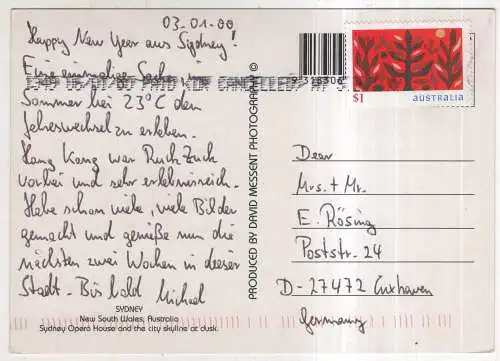 03.01.00
Happy New Year aus Sydney!
Eine einmalige Sache, im
Sommer bei 23°C den
Jahreswechsel zu erleben.
Hong Kong war Ruck Zuck
vorbei und sehr erlebnisreich.
Habe schon viele, viele Bilder
gemacht und genieße nun die
nächsten zwei Wochen in dieser
Stadt. Bis bald Michael
SYDNEY
New South Wales, Australia
Sydney Opera House and the city skyline at dusk.
PRODUCED BY DAVID MESSENT PHOTOGRAPHY ©
$1 AUSTRALIA
Dear
Mrs. + Mr.
E. Rösing
Poststr. 24
D-27472 Cuxhaven
Germany